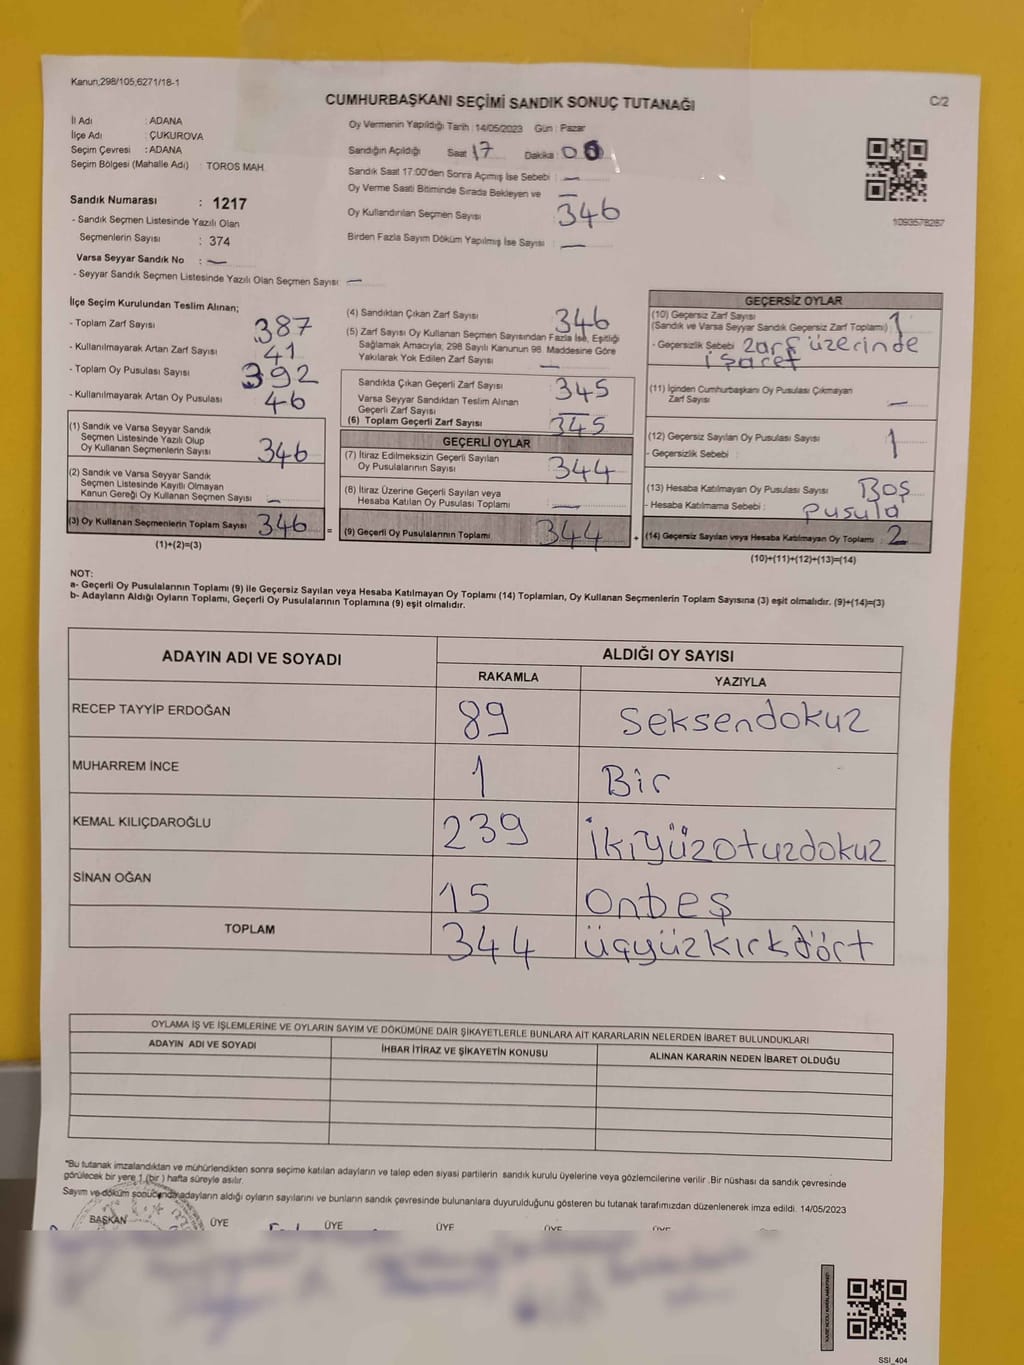 Kanun,298/105,6271/18-1
CUMHURBAŞKANI SEÇİMİ SANDIK SONUÇ TUTANAĞI
C/2
İl Adı : ADANA
İlçe Adı : ÇUKUROVA
Seçim Çevresi : ADANA
Seçim Bölgesi (Mahalle Adı) : TOROS MAH.
Sandık Numarası : 1217
- Sandık Seçmen Listesinde Yazılı Olan
Seçmenlerin Sayısı : 374
Varsa Seyyar Sandık No : —
- Seyyar Sandık Seçmen Listesinde Yazılı Olan Seçmen Sayısı —
Oy Vermenin Yapıldığı Tarih : 14/05/2023 Gün : Pazar
Sandığın Açıldığı Saat 17 Dakika : 00
Sandık Saat 17:00'den Sonra Açımış İse Sebebi : —
Oy Verme Saati Bitiminde Sırada Bekleyen ve —
Oy Kullandırılan Seçmen Sayısı : 346
Birden Fazla Sayım Döküm Yapılmış İse Sayısı : —
1093578287
İlçe Seçim Kurulundan Teslim Alınan;
- Toplam Zarf Sayısı : 387
- Kullanılmayarak Artan Zarf Sayısı : 41
- Toplam Oy Pusulası Sayısı : 392
- Kullanılmayarak Artan Oy Pusulası : 46
(1) Sandık ve Varsa Seyyar Sandık
Seçmen Listesinde Yazılı Olup
Oy Kullanan Seçmenlerin Sayısı : 346
(2) Sandık ve Varsa Seyyar Sandık
Seçmen Listesinde Kayıtlı Olmayan
Kanun Gereği Oy Kullanan Seçmen Sayısı : —
(3) Oy Kullanan Seçmenlerin Toplam Sayısı : 346
(1)+(2)=(3)
=
(4) Sandıktan Çıkan Zarf Sayısı : 346
(5) Zarf Sayısı Oy Kullanan Seçmen Sayısından Fazla İse, Eşitliği
Sağlamak Amacıyla; 298 Sayılı Kanunun 98. Maddesine Göre
Yakılarak Yok Edilen Zarf Sayısı : —
Sandıkta Çıkan Geçerli Zarf Sayısı : 345
Varsa Seyyar Sandıktan Teslim Alınan
Geçerli Zarf Sayısı : —
(6) Toplam Geçerli Zarf Sayısı : 345
GEÇERLİ OYLAR
(7) İtiraz Edilmeksizin Geçerli Sayılan
Oy Pusulalarının Sayısı : 344
(8) İtiraz Üzerine Geçerli Sayılan veya
Hesaba Katılan Oy Pusulası Toplamı : —
(9) Geçerli Oy Pusulalarının Toplamı : 344
+
GEÇERSİZ OYLAR
(10) Geçersiz Zarf Sayısı
(Sandık ve Varsa Seyyar Sandık Geçersiz Zarf Toplamı) : 1
- Geçersizlik Sebebi : zarf üzerinde
işaret
(11) İçinden Cumhurbaşkanı Oy Pusulası Çıkmayan
Zarf Sayısı : —
(12) Geçersiz Sayılan Oy Pusulası Sayısı : 1
- Geçersizlik Sebebi :
(13) Hesaba Katılmayan Oy Pusulası Sayısı : Boş
- Hesaba Katılmama Sebebi : pusula
(14) Geçersiz Sayılan veya Hesaba Katılmayan Oy Toplamı : 2
(10)+(11)+(12)+(13)=(14)
NOT:
a- Geçerli Oy Pusulalarının Toplamı (9) ile Geçersiz Sayılan veya Hesaba Katılmayan Oy Toplamı (14) Toplamları, Oy Kullanan Seçmenlerin Toplam Sayısına (3) eşit olmalıdır. (9)+(14)=(3)
b- Adayların Aldığı Oyların Toplamı, Geçerli Oy Pusulalarının Toplamına (9) eşit olmalıdır.
ADAYIN ADI VE SOYADI ALDIĞI OY SAYISI
RAKAMLA YAZIYLA
RECEP TAYYİP ERDOĞAN 89 Seksendokuz
MUHARREM İNCE 1 Bir
KEMAL KILIÇDAROĞLU 239 İkiyüzotuzdokuz
SİNAN OĞAN 15 Onbeş
TOPLAM 344 üçyüzkırkdört
OYLAMA İŞ VE İŞLEMLERİNE VE OYLARIN SAYIM VE DÖKÜMÜNE DAİR ŞİKAYETLERLE BUNLARA AİT KARARLARIN NELERDEN İBARET BULUNDUKLARI
ADAYIN ADI VE SOYADI İHBAR İTİRAZ VE ŞİKAYETİN KONUSU ALINAN KARARIN NEDEN İBARET OLDUĞU
"Bu tutanak imzalandıktan ve mühürlendikten sonra seçime katılan adayların ve talep eden siyasi partilerin sandık kurulu üyelerine veya gözlemcilerine verilir .Bir nüshası da sandık çevresinde
görülecek bir yere 1 (bir ) hafta süreyle asılır.
Sayım ve döküm sonucunda adayların aldığı oyların sayılarını ve bunların sandık çevresinde bulunanlara duyurulduğunu gösteren bu tutanak tarafımızdan düzenlenerek imza edildi. 14/05/2023
BAŞKAN ÜYE ÜYE ÜYE ÜYE ÜYE
SSI_404